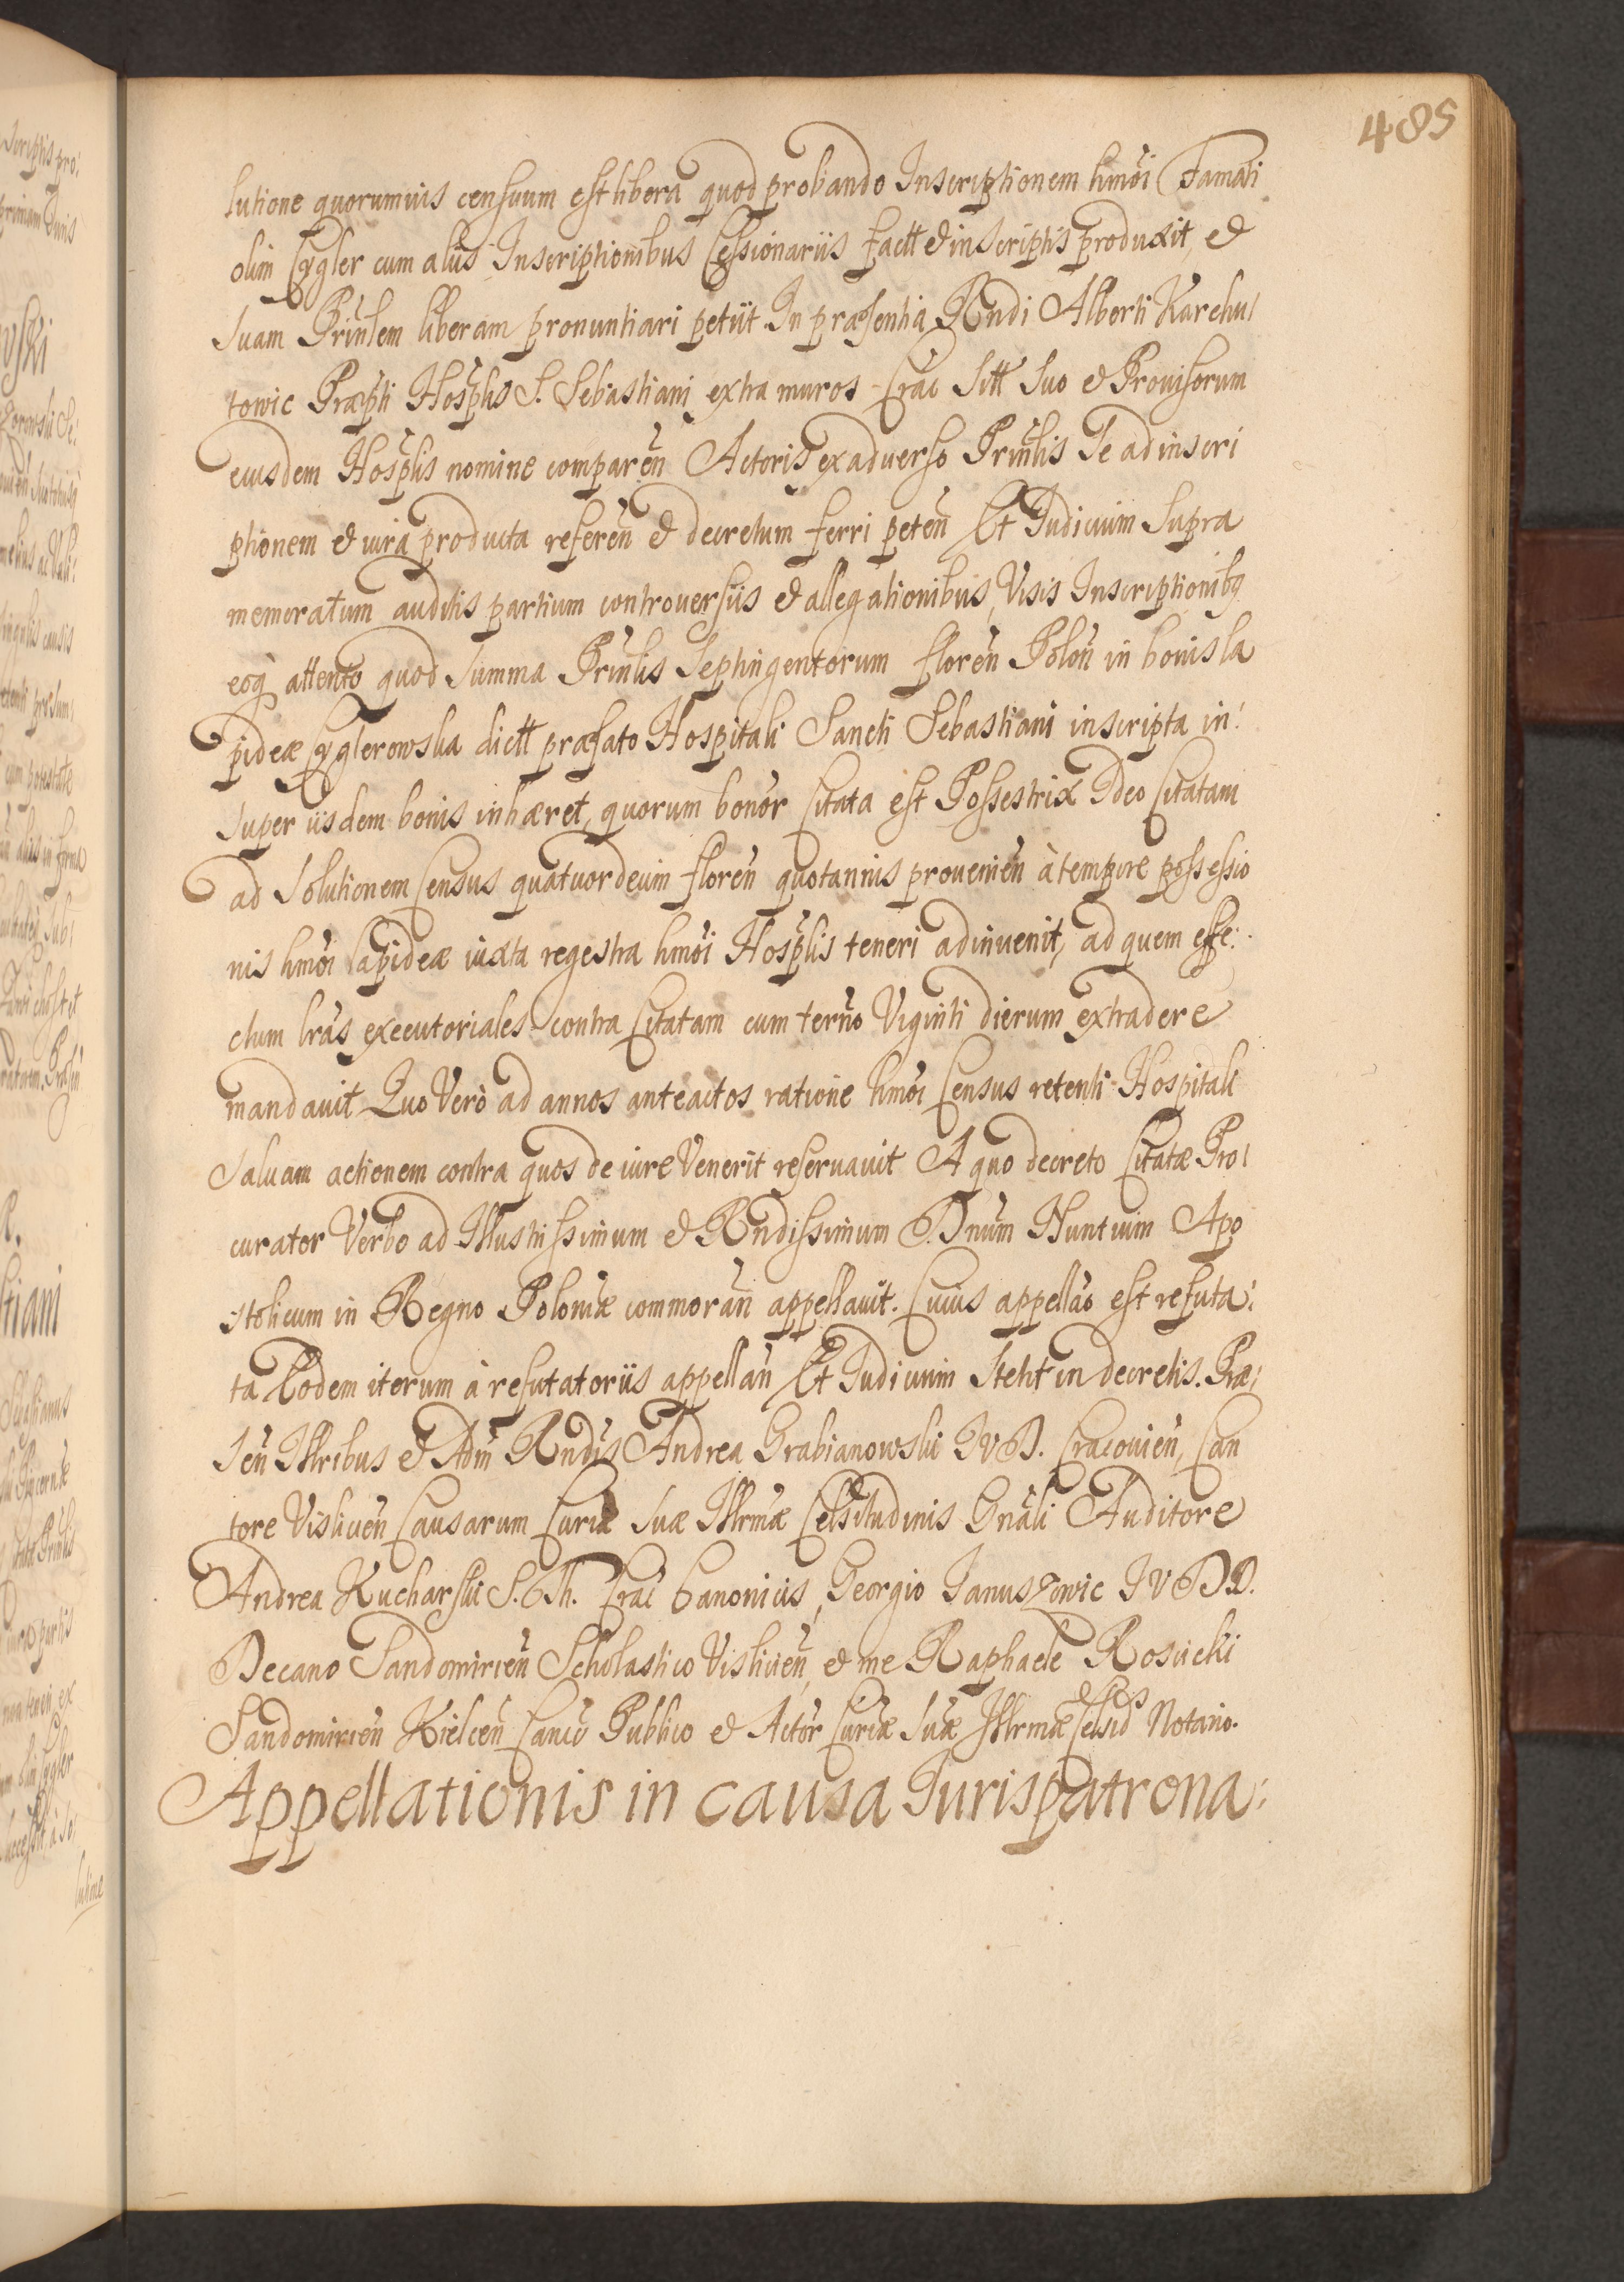 485
lutione quorumuis censuum est libera quod probando Inscriptionem hmoi Famati
olim Cygler cum alijs Inscriptionibus Cessionarijs factt & in scriptis produxit, &
suam Prinlem liberam pronuntiari petijt In præsentia Rndi Alberti Karchu/
towic Præpti Hosplis S. Sebastiani extra muros Crac sitt suo & Prouisorum
eiusdem Hosplis nomine comparen Actoris ex aduerso Prinlis Se ad inscri
ptionem & iura producta referen & decretum ferri peten Et Iudicium supra
memoratum auditis partium controuersijs & allegationibus, Visis Inscriptionibq
eoq attento quod summa Prinlis Septingentorum floren Polon in bonis la
pideæ Cyglerowska dictt præfato Hospitali Sancti Sebastiani inscripta in:
super ijsdem bonis inhæret, quorum bonor Citata est Possestrix Ideo Citatam
ad Solutionem Census quatuordecim floren quotannis prouenien à tempore possessio
nis hmoi lapideæ iuxta regestra hmoi Hosplis teneri adinuenit, ad quem effe:
ctum lras executoriales contra Citatam cum terno Viginti dierum extradere
mandauit Quo Verò ad annos anteactos ratione hmoi Census retenti Hospitali
saluam actionem contra quos de iure Venerit reseruauit A quo decreto Citatæ Pro/
curator Verbo ad Illustrissimum & Rndissimum D. Dnum Nuntium Apo
stolicum in Regno Poloniæ commoran appellauit. Cuius appellao est refuta:
ta Eodem iterum à refutatorijs appellan Et Iudicium stetit in decretis. Præ:
sen Illribus & Adm Rndis Andrea Grabianowski IVD. Cracouien, Can
tore Visliuen Causarum Curiæ suæ Illrmæ Celsitudinis Gnali Auditore
Andrea Kucharski S. Th. Crac Canonicis, Georgio Januszowic IVDD.
Decano Sandomirien Scholastico Visliuen, & me Raphaele Rosiicki
Sandomirien Kielcen Canco Publico & Actor Curiæ suæ Illrmæ Celsid Notario.
Appellationis in causa Iurispatrona: